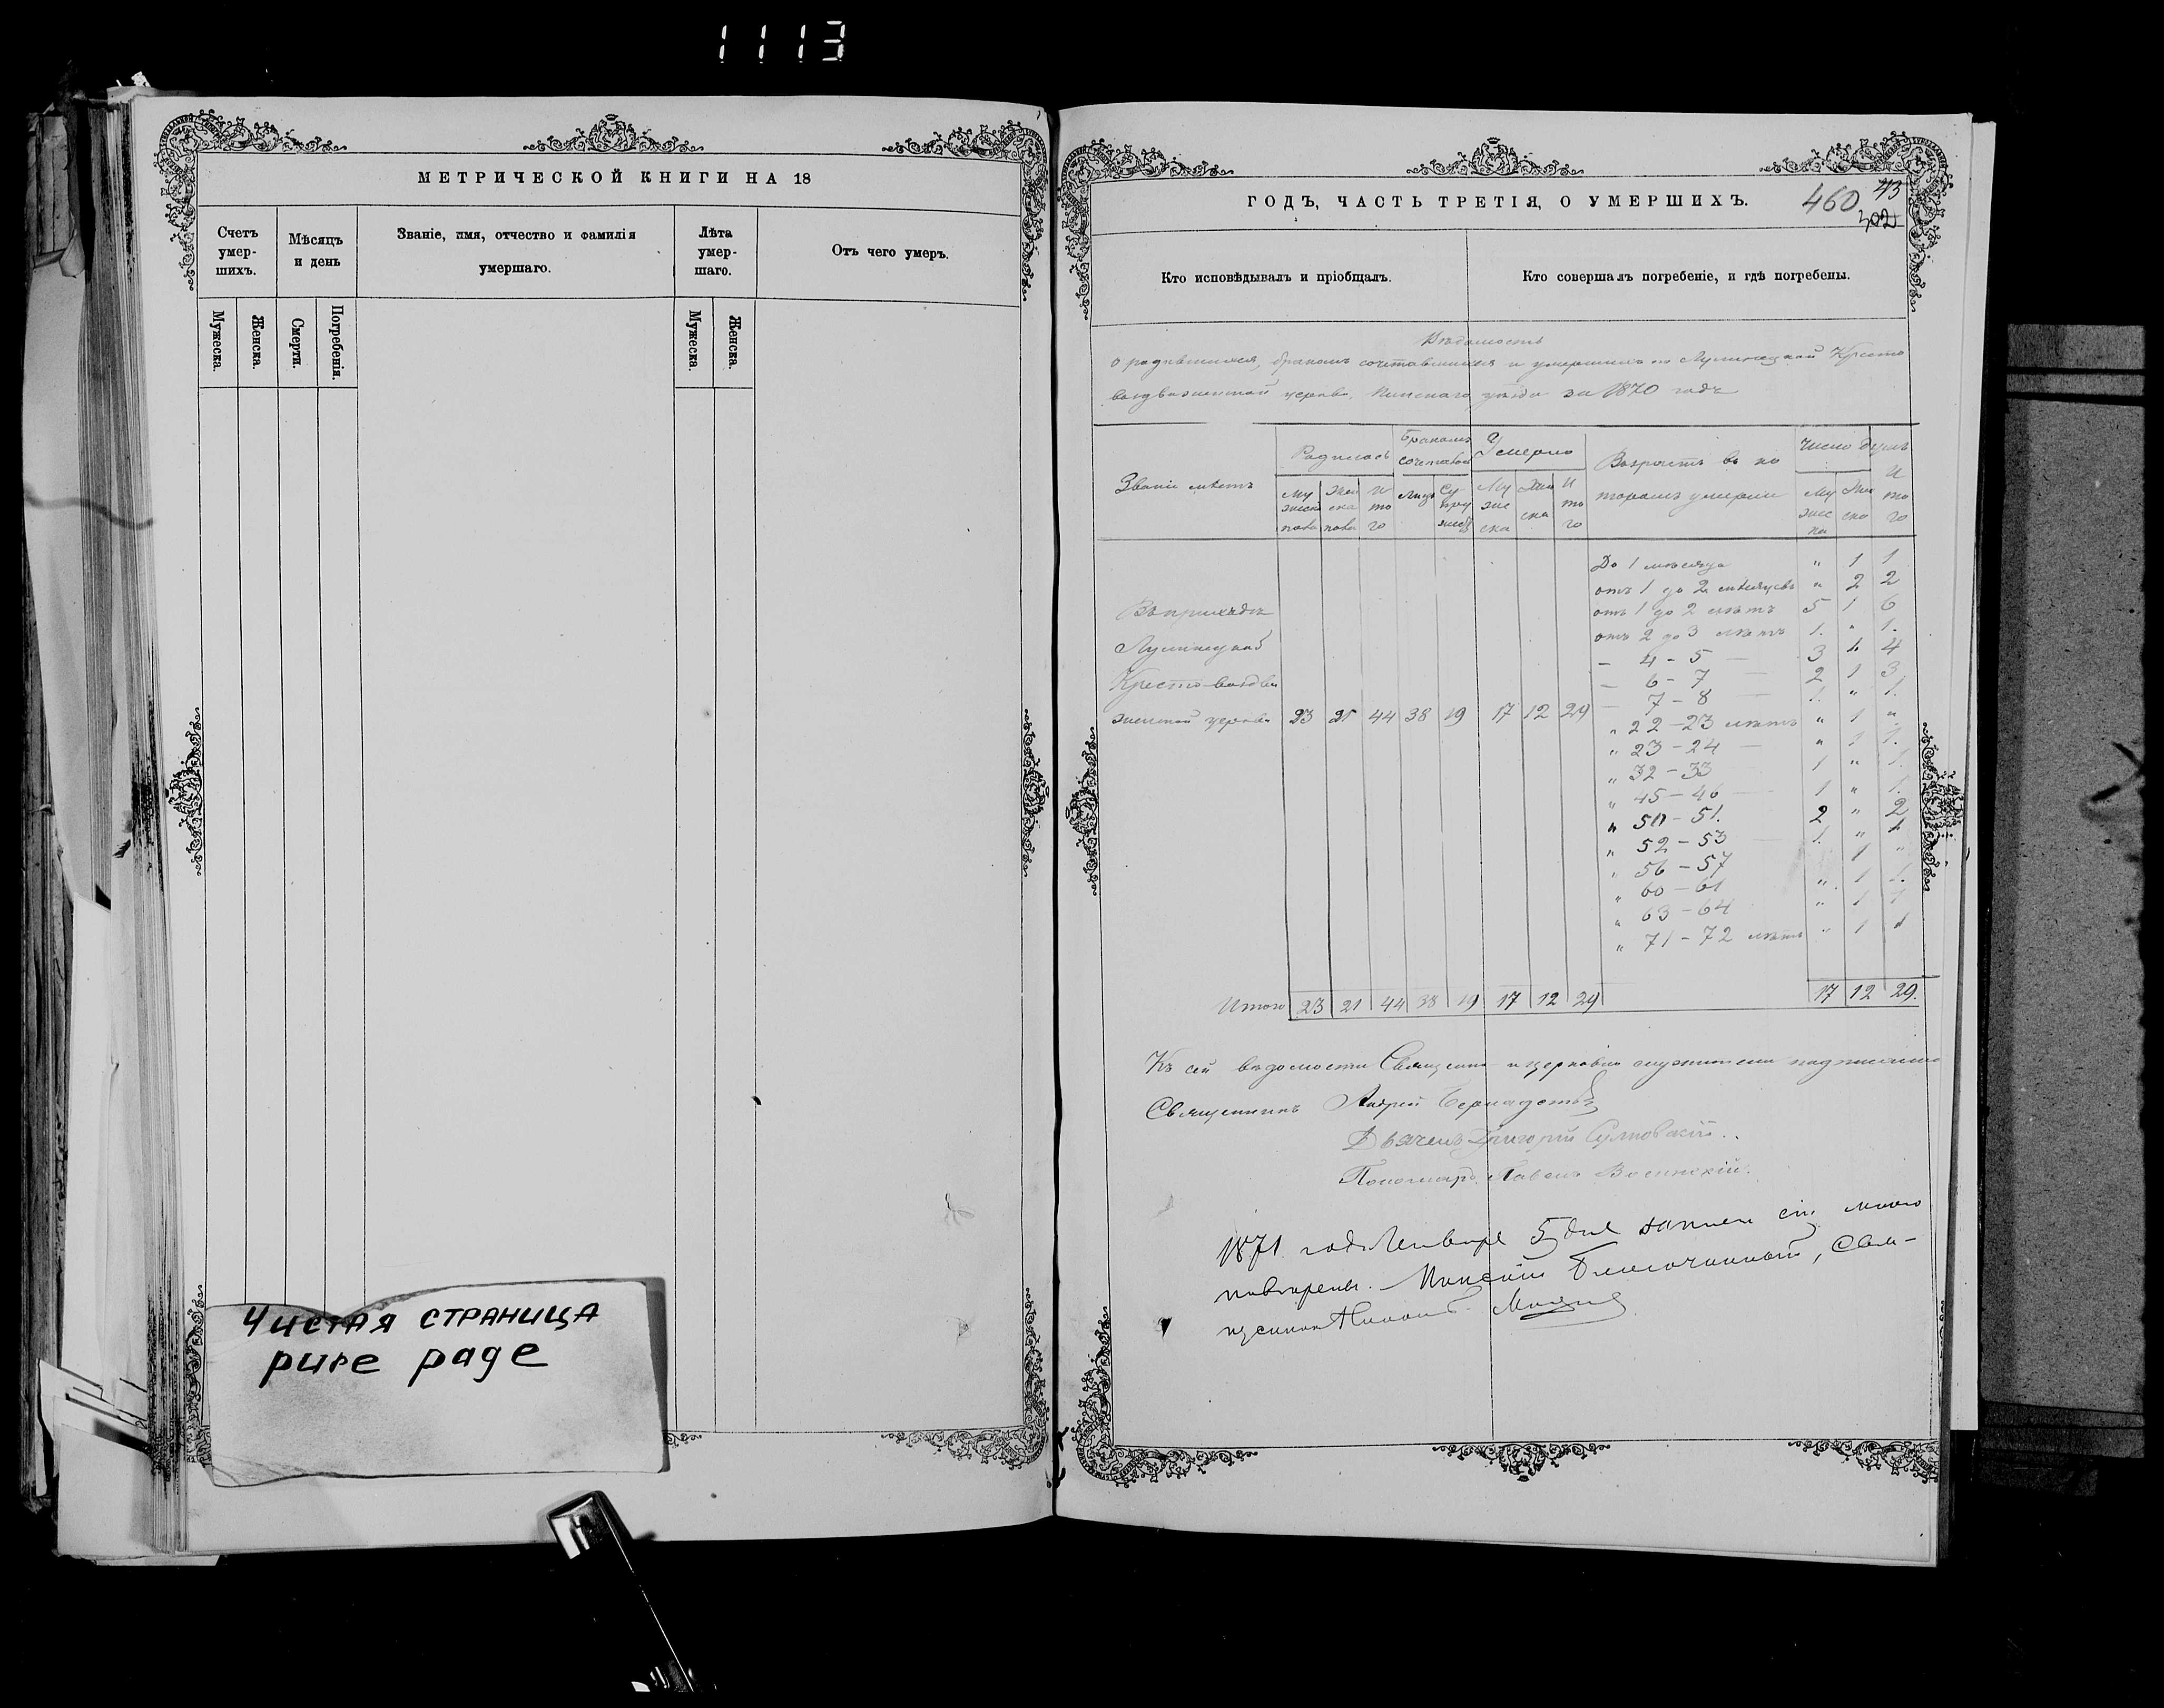 1113
МЕТРИЧЕСКОЙ КНИГИ НА 18
Счетъ умер-шихъ.
Мѣсяцъ и день
Званіе, имя, отчество и фамилія умершаго.
Лѣта умер-шаго.
Отъ чего умеръ.
Мужеска.
Женска.
Смерти.
Погребенія.
Мужеска.
Женска.
Чистая страница
pure page
ГОДЪ, ЧАСТЬ ТРЕТІЯ, О УМЕРШИХЪ.
460
43
302
Кто исповѣдывалъ и пріобщалъ.
Кто совершалъ погребеніе, и гдѣ погребены.
Вѣдомость
о родившихся, бракомъ сочетавшихся и умершихъ по Лунинецкой Кресто
воздвиженской церкви, Пинскаго уѣзда за 1870 годъ
Званіе мѣстъ
Родилось
Бракомъ сочетавш
Умерло
Возрастъ въ ко
торомъ умерли
Число душъ
И то го
Му жеска пола
Жен ска пола
И то го
Лицъ
Су пру жеств
Му жес ска
Жен ска
И то го
Му жес ка
Жен ска
До 1 мѣсяца " 1 1
отъ 1 до 2 мѣсяцевъ " 2 2
Въ приходѣ
отъ 1 до 2 лѣтъ 5 1 6
отъ 2 до 3 лѣтъ 1. " 1.
Лунинецкой
— 4 - 5 — 3 1 4
Крестовоздви
— 6 - 7 — 2 1 3
— 7 - 8 — 1. " 1.
женской церкви 23 21 44 38 19 17 12 29
" 22 - 23 лѣтъ " 1 "
" 23 - 24 — " 1 1.
" 32 - 33 1 " 1.
" 45 - 46 — 1 " 1.
" 50 - 51. 2 " 2
" 52 - 53 1. " 1
" 56 - 57 1 "
" 60 - 61 " 1 1.
" 63 - 64 " 1 1
" 71 - 72 лѣтъ " 1 1
Итого 23 21 44 38 19 17 12 29 17 12 29.
Къ сей вѣдомости Священно и церковно служители подписались
Священникъ Андрей
Дьячекъ Григорій
Пономарь Павелъ
1871 года Января 5 дня записи сіи мною
повѣрены. Пинскій Благочинный, Свя-
щенникъ